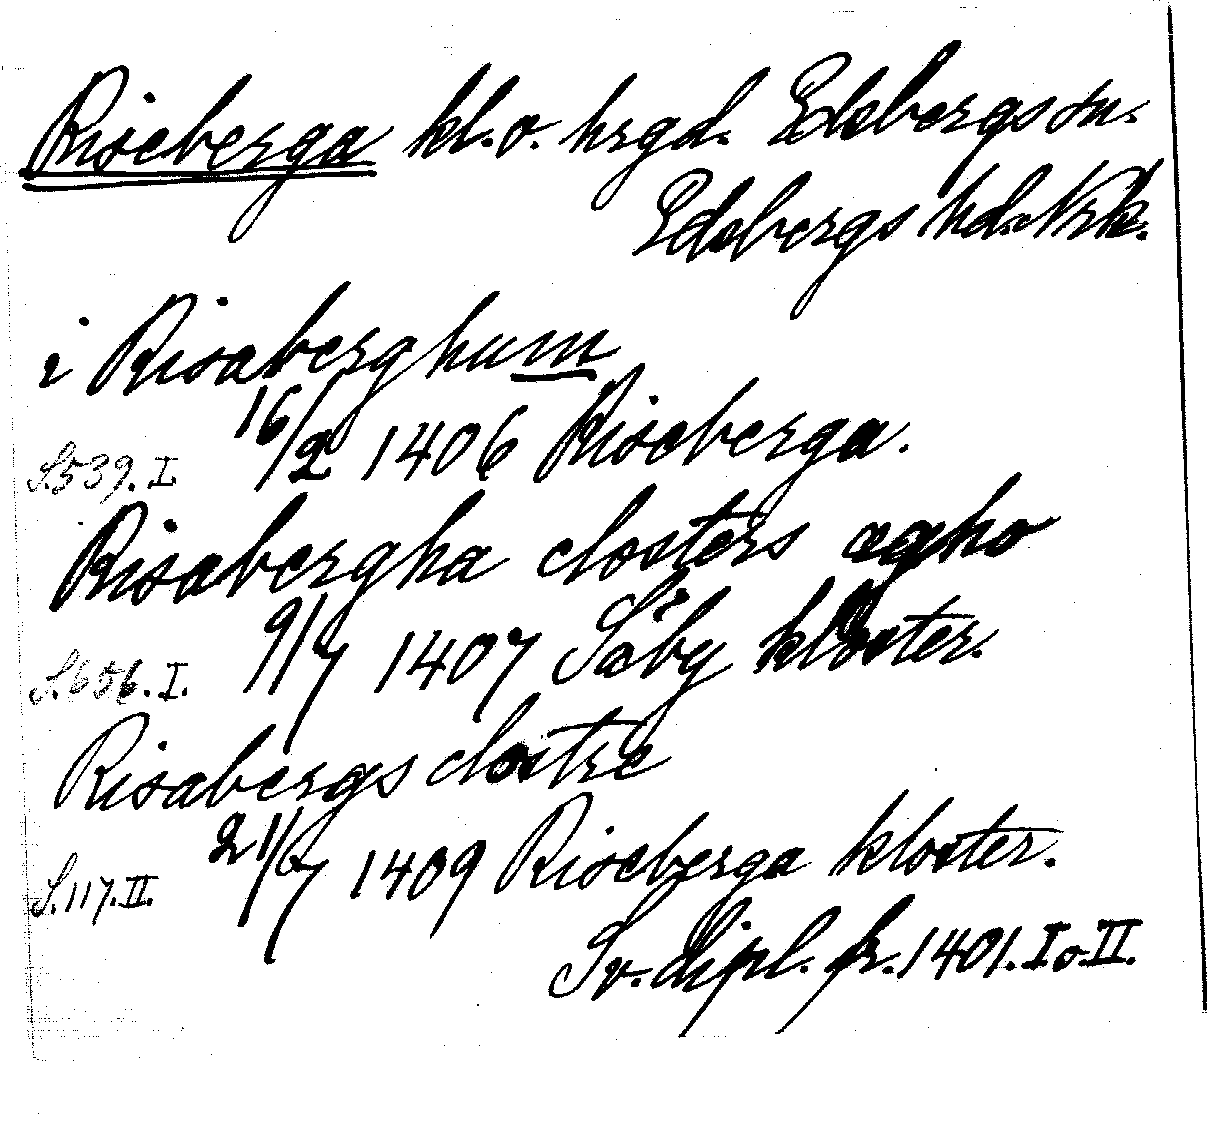 Riseberga kl. o. hrgd. Edsbergs sn.
Edsbergs hd. Nrk.
i Risaberghum
16/2 1406 Riseberga.
S. 539. I.
Risabergha closters ægho
9/7 1407 Säby kloster.
S. 656. I.
Risabergs clostre
21/7 1409 Riseberga kloster.
S. 117. II.
Sv. dipl. fr. 1401. I o. II.